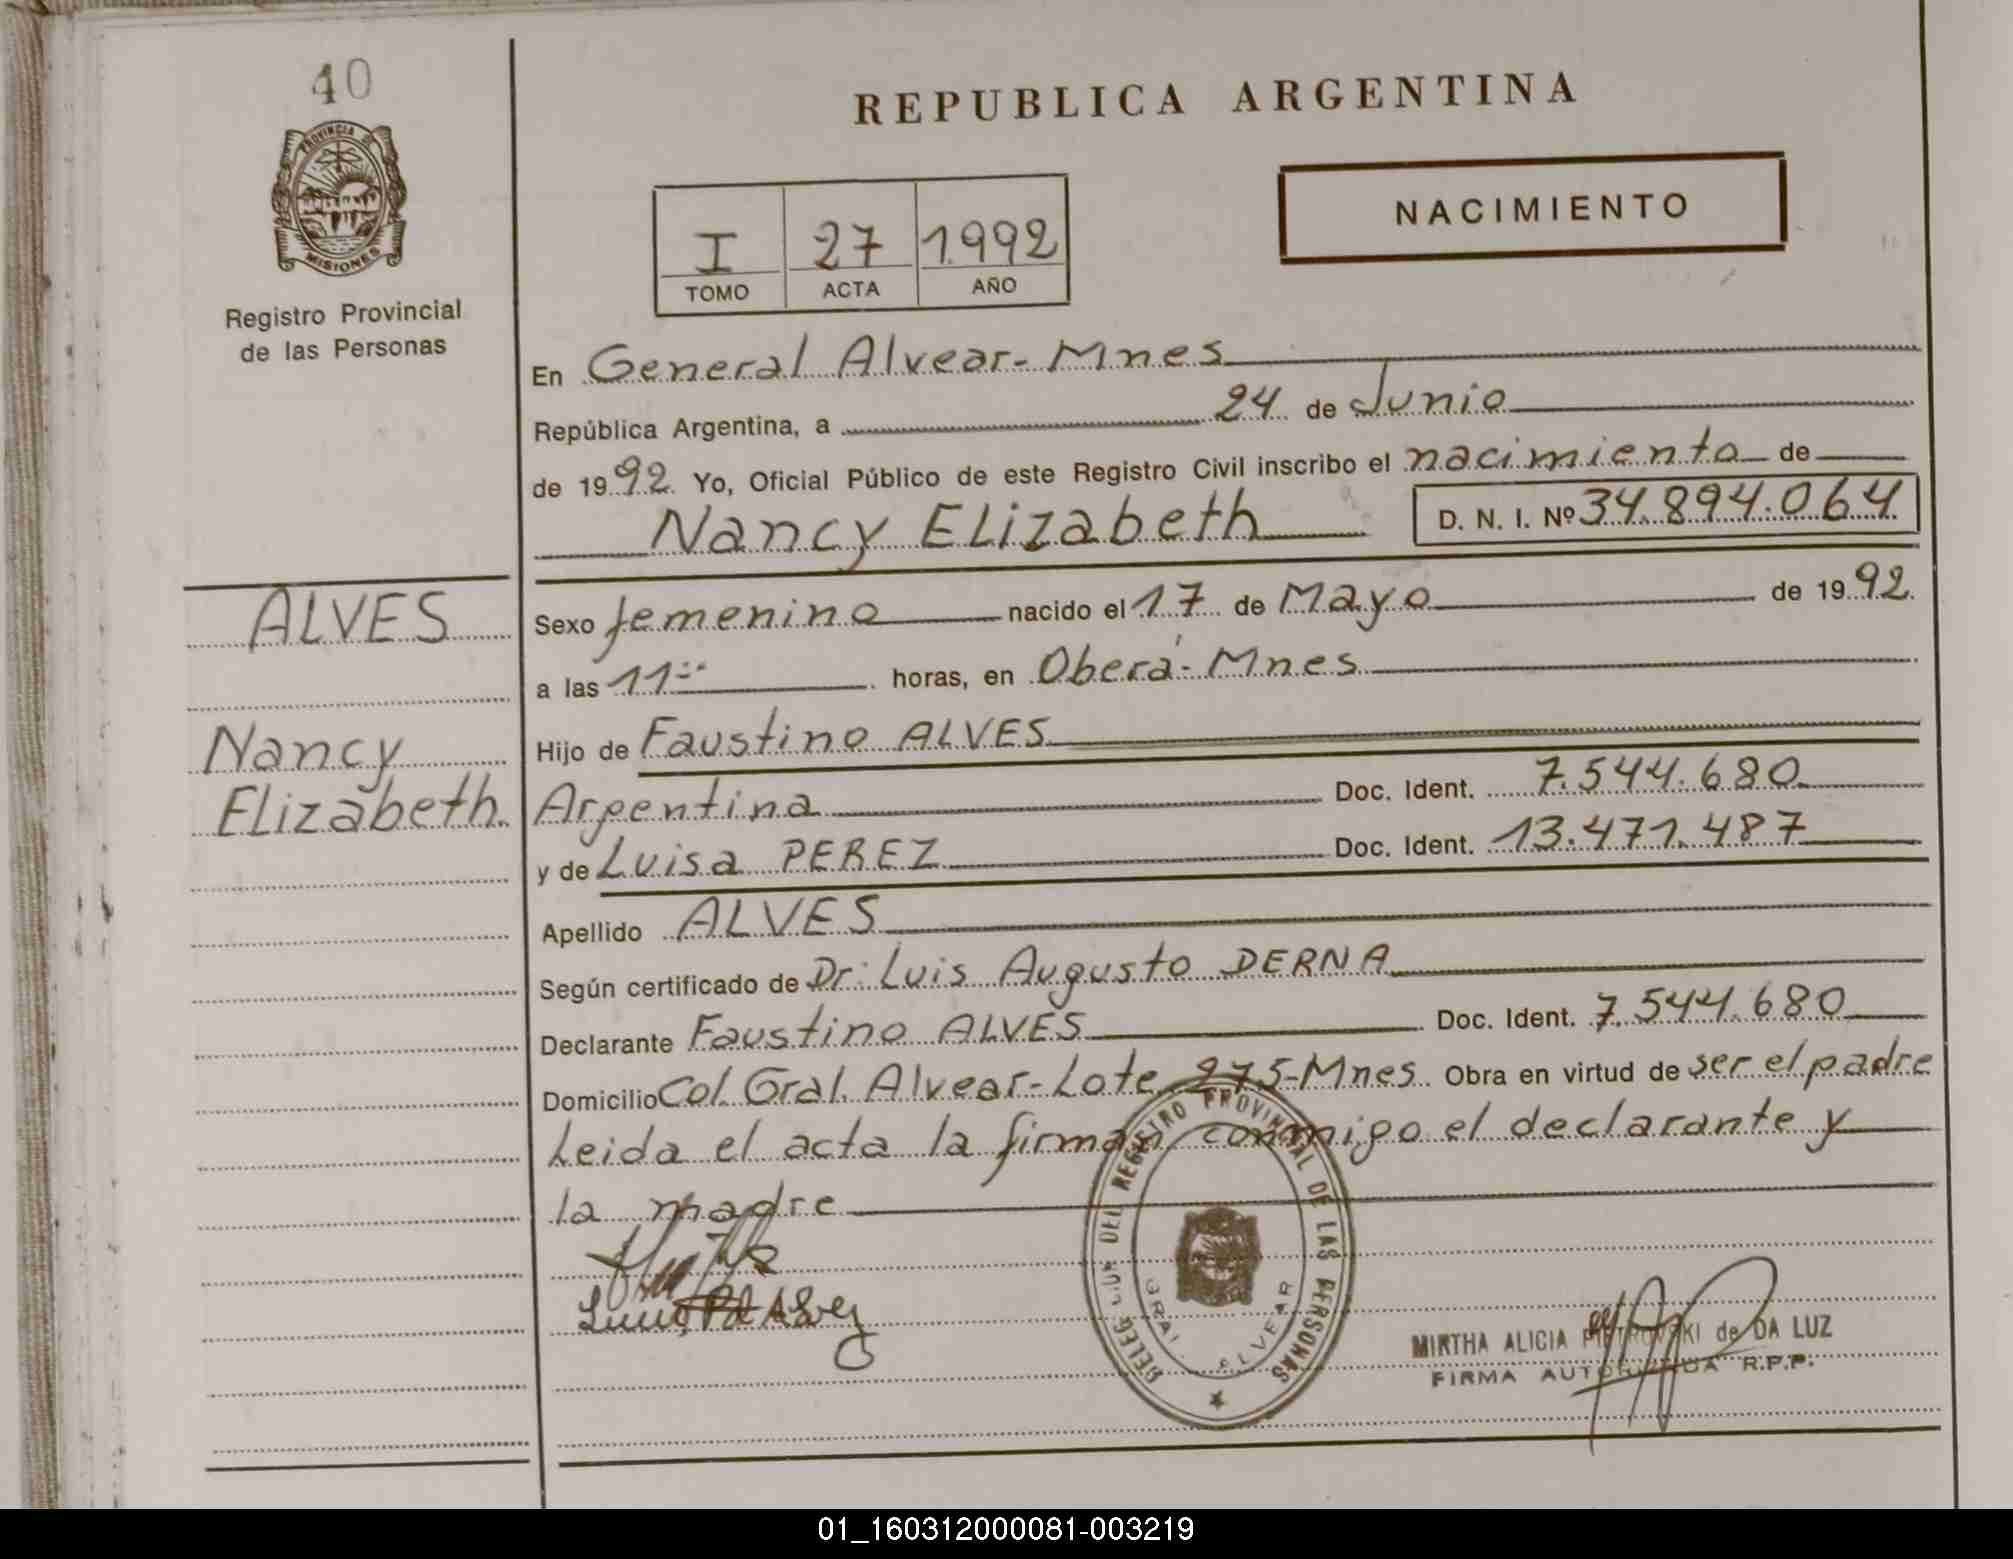 40
PROVINCIA DE
MISIONES
Registro Provincial
de las Personas
REPUBLICA ARGENTINA
NACIMIENTO
I 27 1992
TOMO ACTA AÑO
En General Alvear-Mnes
República Argentina, a 24 de Junio
de 1992. Yo, Oficial Público de este Registro Civil inscribo el nacimiento de
Nancy Elizabeth D. N. I. Nº 34.894.064
ALVES
Nancy
Elizabeth.
Sexo femenino nacido el 17 de Mayo de 1992.
a las 11 horas, en Oberá-Mnes
Hijo de Faustino ALVES
Argentina Doc. Ident. 7.544.680
y de Luisa PEREZ Doc. Ident. 13.471.487
Apellido ALVES
Según certificado de Dr. Luis Augusto DERNA
Declarante Faustino ALVES Doc. Ident. 7.544.680
Domicilio Col. Gral. Alvear-Lote 275-Mnes. Obra en virtud de ser el padre
Leida el acta la firman conmigo el declarante y
la madre
DELEGACION DEL REGISTRO PROVINCIAL DE LAS PERSONAS
GRAL ALVEAR
MIRTHA ALICIA PIETROVSKI de DA LUZ
FIRMA AUTORIZADA R.P.P.
01_160312000081-003219